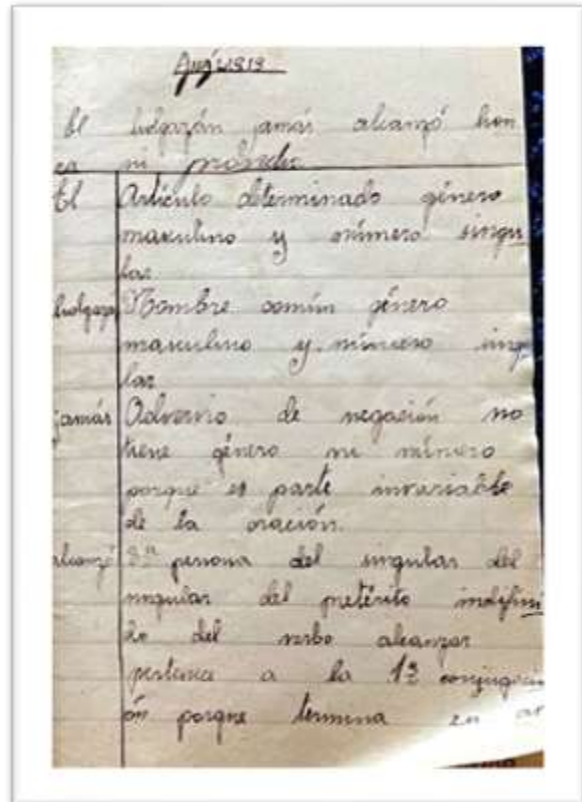 El holgazán jamás alcanzó hon
ra ni provecho
El Artículo determinado género
masculino y número singu
lar
holgazá Nombre común género
masculino y número sing
lar
jamás Advervio de negación no
tiene género ni número
porque es parte invariable
de la oración.
alcanzó 3ª persona del singular del
singular del pretérito indefini
do del verbo alcanzar
pertenece a la 1ª conjugaci
ón porque termina en ar